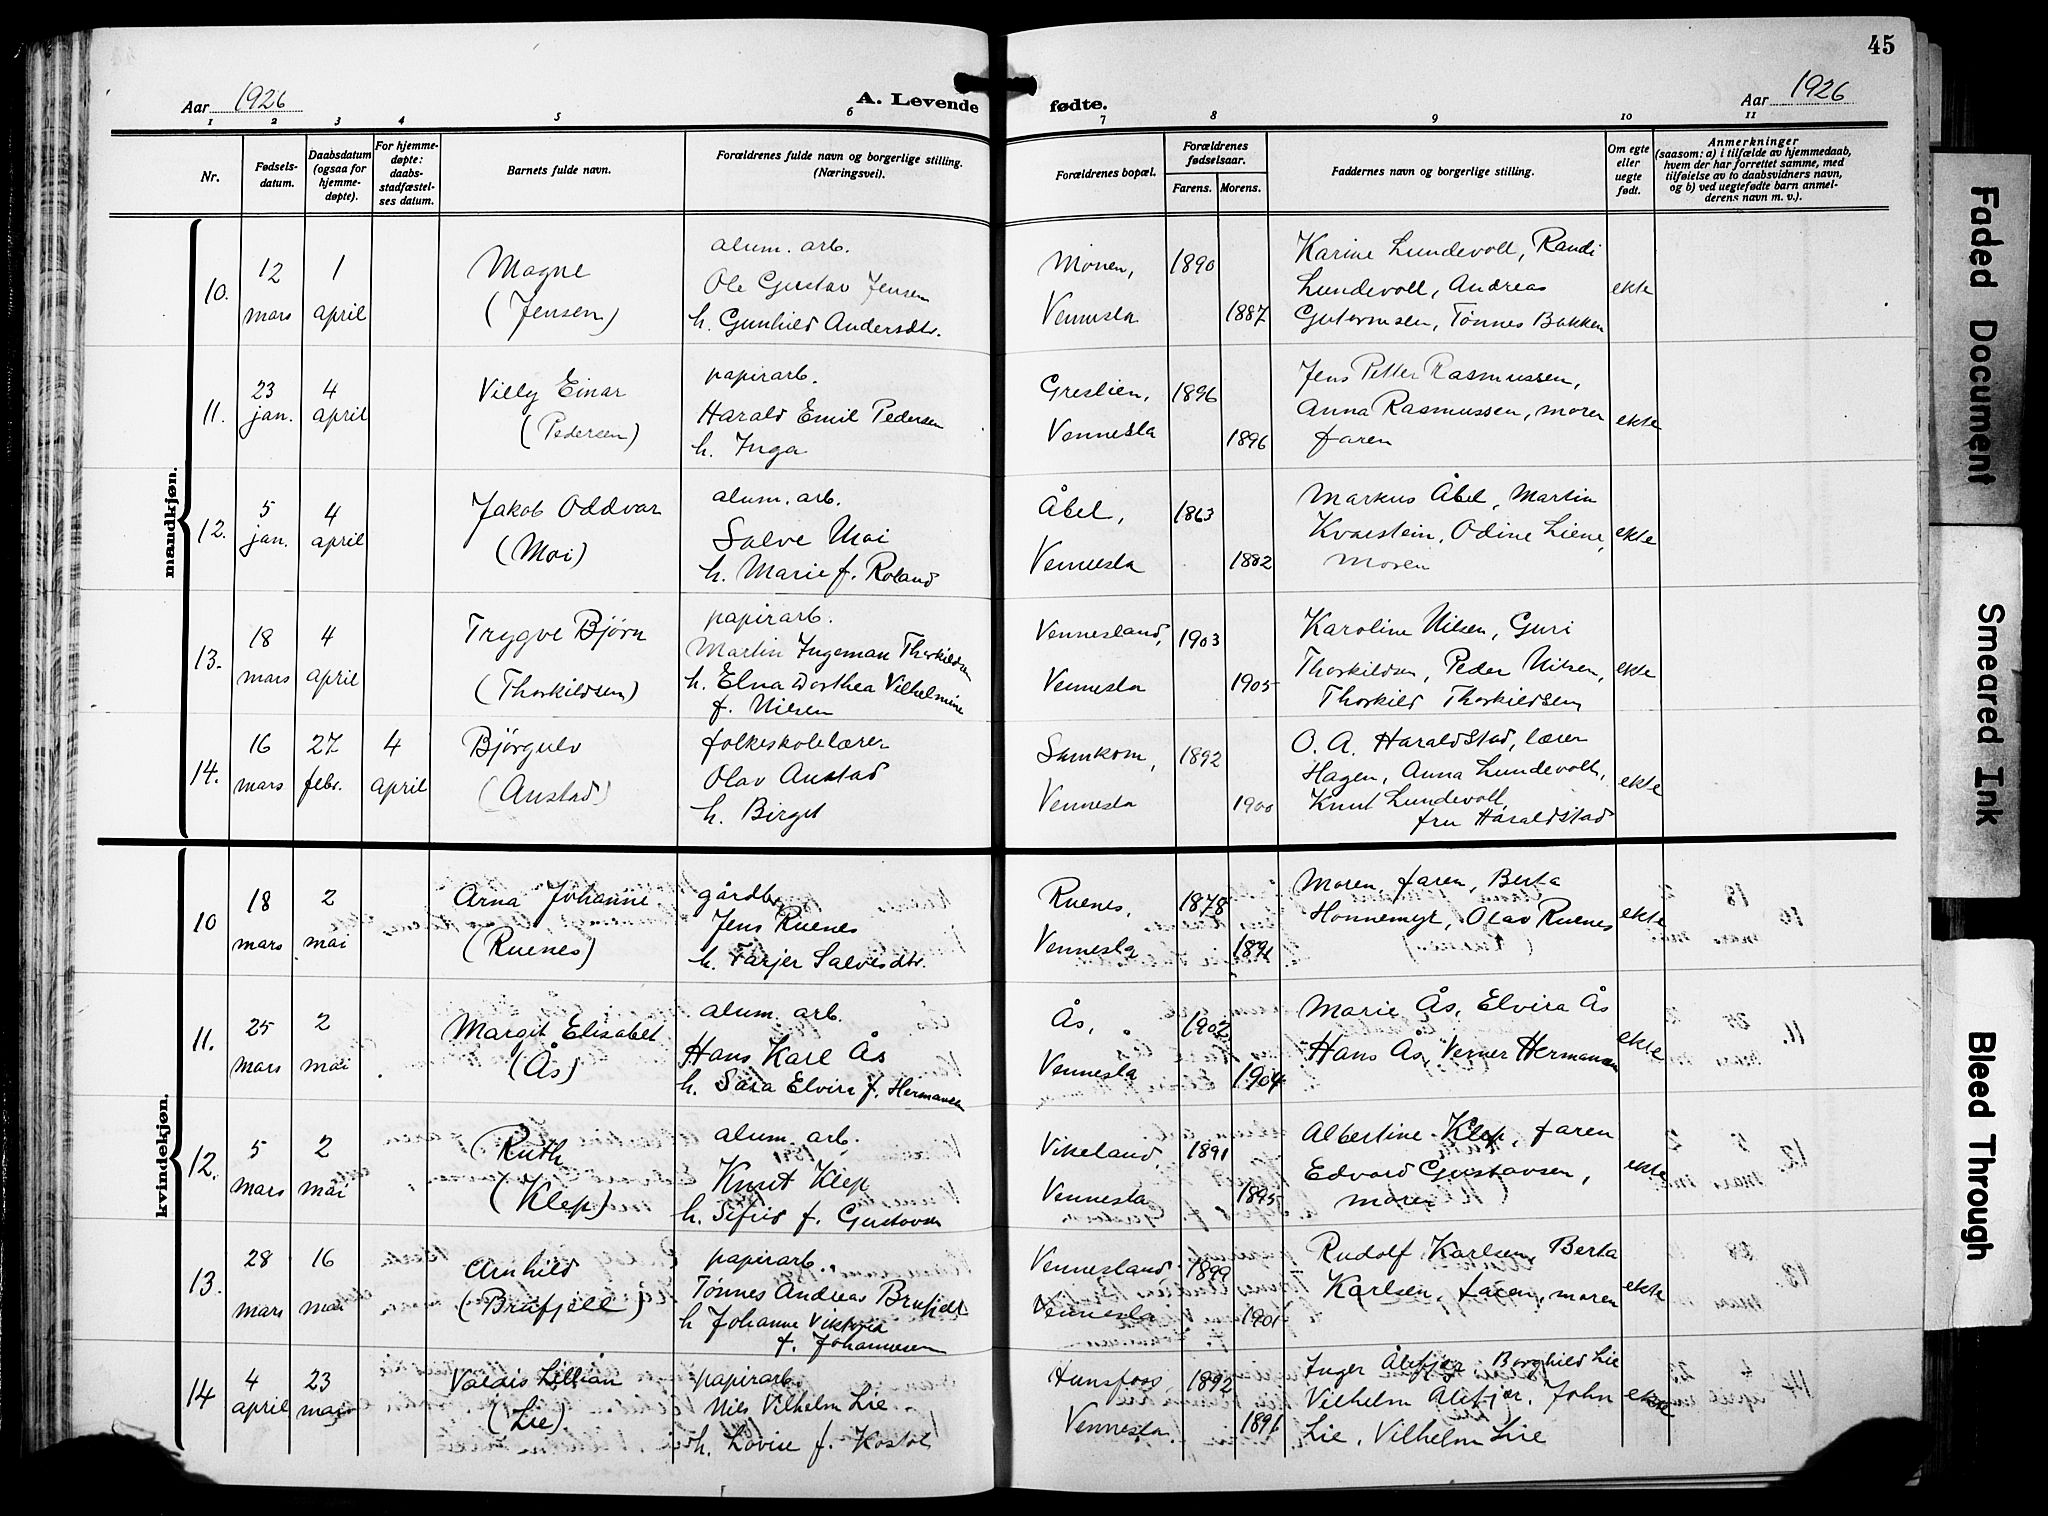 45
Aar 1926
A. Levende
fødte.
Aar 1926
1 2 3 4 5 6 7 8 9 10 11
Nr.
Fødsels-
datum.
Daabsdatum
(ogsaa for
hjemme-
døpte).
For hjemme-
døpte:
daabs-
stadfæstel-
ses datum.
Barnets fulde navn.
Forældrenes fulde navn og borgerlige stilling.
(Næringsvei).
Forældrenes bopæl.
Forældrenes
fødselsaar.
Farens. Morens.
Faddernes navn og borgerlige stilling.
Om egte
eller
uegte
født.
Anmerkninger
(saasom: a) i tilfælde av hjemmedaab,
hvem der har forrettet samme, med
tilføielse av to daabsvidners navn,
og b) ved uegtefødte barn anmel-
derens navn m. v.).
mandkjøn.
10.
12
mars
1
april
Magne
(Jensen)
alum. arb.
Ole Gustav Jensen
h. Gunhild Andersdtr.
Moien,
Vennesla
1890
1887
Karine Lundevoll, Randi
Lundevoll, Andreas
Gutormsen, Tønnes Bakken
ekte
11.
23
jan.
4
april
Villy Einar
(Pedersen)
papirarb.
Harald Emil Pedersen
h. Inga
Greslien,
Vennesla
1896
1896
Jens Petter Rasmussen,
Anna Rasmussen, moren
faren
ekte
12.
5
jan.
4
april
Jakob Oddvar
(Moi)
alum. arb.
Salve Moi
h. Marie f. Roland
Åbel,
Vennesla
1863
1882
Markus Åbel, Martin
Kvarstein, Odine Liene,
moren
ekte
13.
18
mars
4
april
Trygve Bjørn
(Thorkildsen)
papirarb.
Martin Ingeman Thorkildsen
h. Elna Dorthea Vilhelmine
f. Nilsen
Vennesland,
Vennesla
1903
1905
Karoline Nilsen, Guri
Thorkildsen, Peder Nilsen,
Thorkild Thorkildsen
ekte
14.
16
mars
27
febr.
4
april
Bjørgulv
(Austad)
folkeskolelærer
Olav Austad
h. Birgit
Samkom,
Vennesla
1892
1900
O. A. Haraldstad, lærer
Hagen, Anna Lundevoll,
Knut Lundevoll,
fru Haraldstad
ekte
kvindekjøn.
10
18
mars
2
mai
Arna Johanne
(Ruenes)
gårdbr.
Jens Ruenes
h. Tarjer Salvesdtr.
Ruenes,
Vennesla
1878
1891
Moren, faren, Berta
Honnemyr, Olav Ruenes
ekte
11.
25
mars
2
mai
Margit Elisabet
(Ås)
alum. arb.
Hans Karl Ås
h. Sara Elvira f. Hermansen
Ås,
Vennesla
1902
1904
Marie Ås, Elvira Ås
Hans Ås, Verner Hermansen
ekte
12.
5
mars
2
mai
Ruth
(Klep)
alum. arb.
Knut Klep
h. Sefrid f. Gustavsen
Vikeland,
Vennesla
1891
1895
Albertine Klep, faren
Edvard Gustavsen,
moren
ekte
13.
28
mars
16
mai
Arnhild
(Brufjell)
papirarb.
Tønnes Andreas Brufjell
h Johanne Viktoria
f. Johannesen
Vennesland,
Vennesla
1899
1901
Rudolf Karlsen, Berta
Karlsen, faren, moren
ekte
14
4
april
23
mai
Valdis Lillian
(Lie)
papirarb.
Nils Vilhelm Lie
h. Lovise f. Kostøl
Hunsfoss,
Vennesla
1892
1896
Inger Ålefjær, Borghild Lie
Vilhelm Ålefjær, John
Lie, Vilhelm Lie
ekte
Faded Document
Smeared Ink
Bleed Through